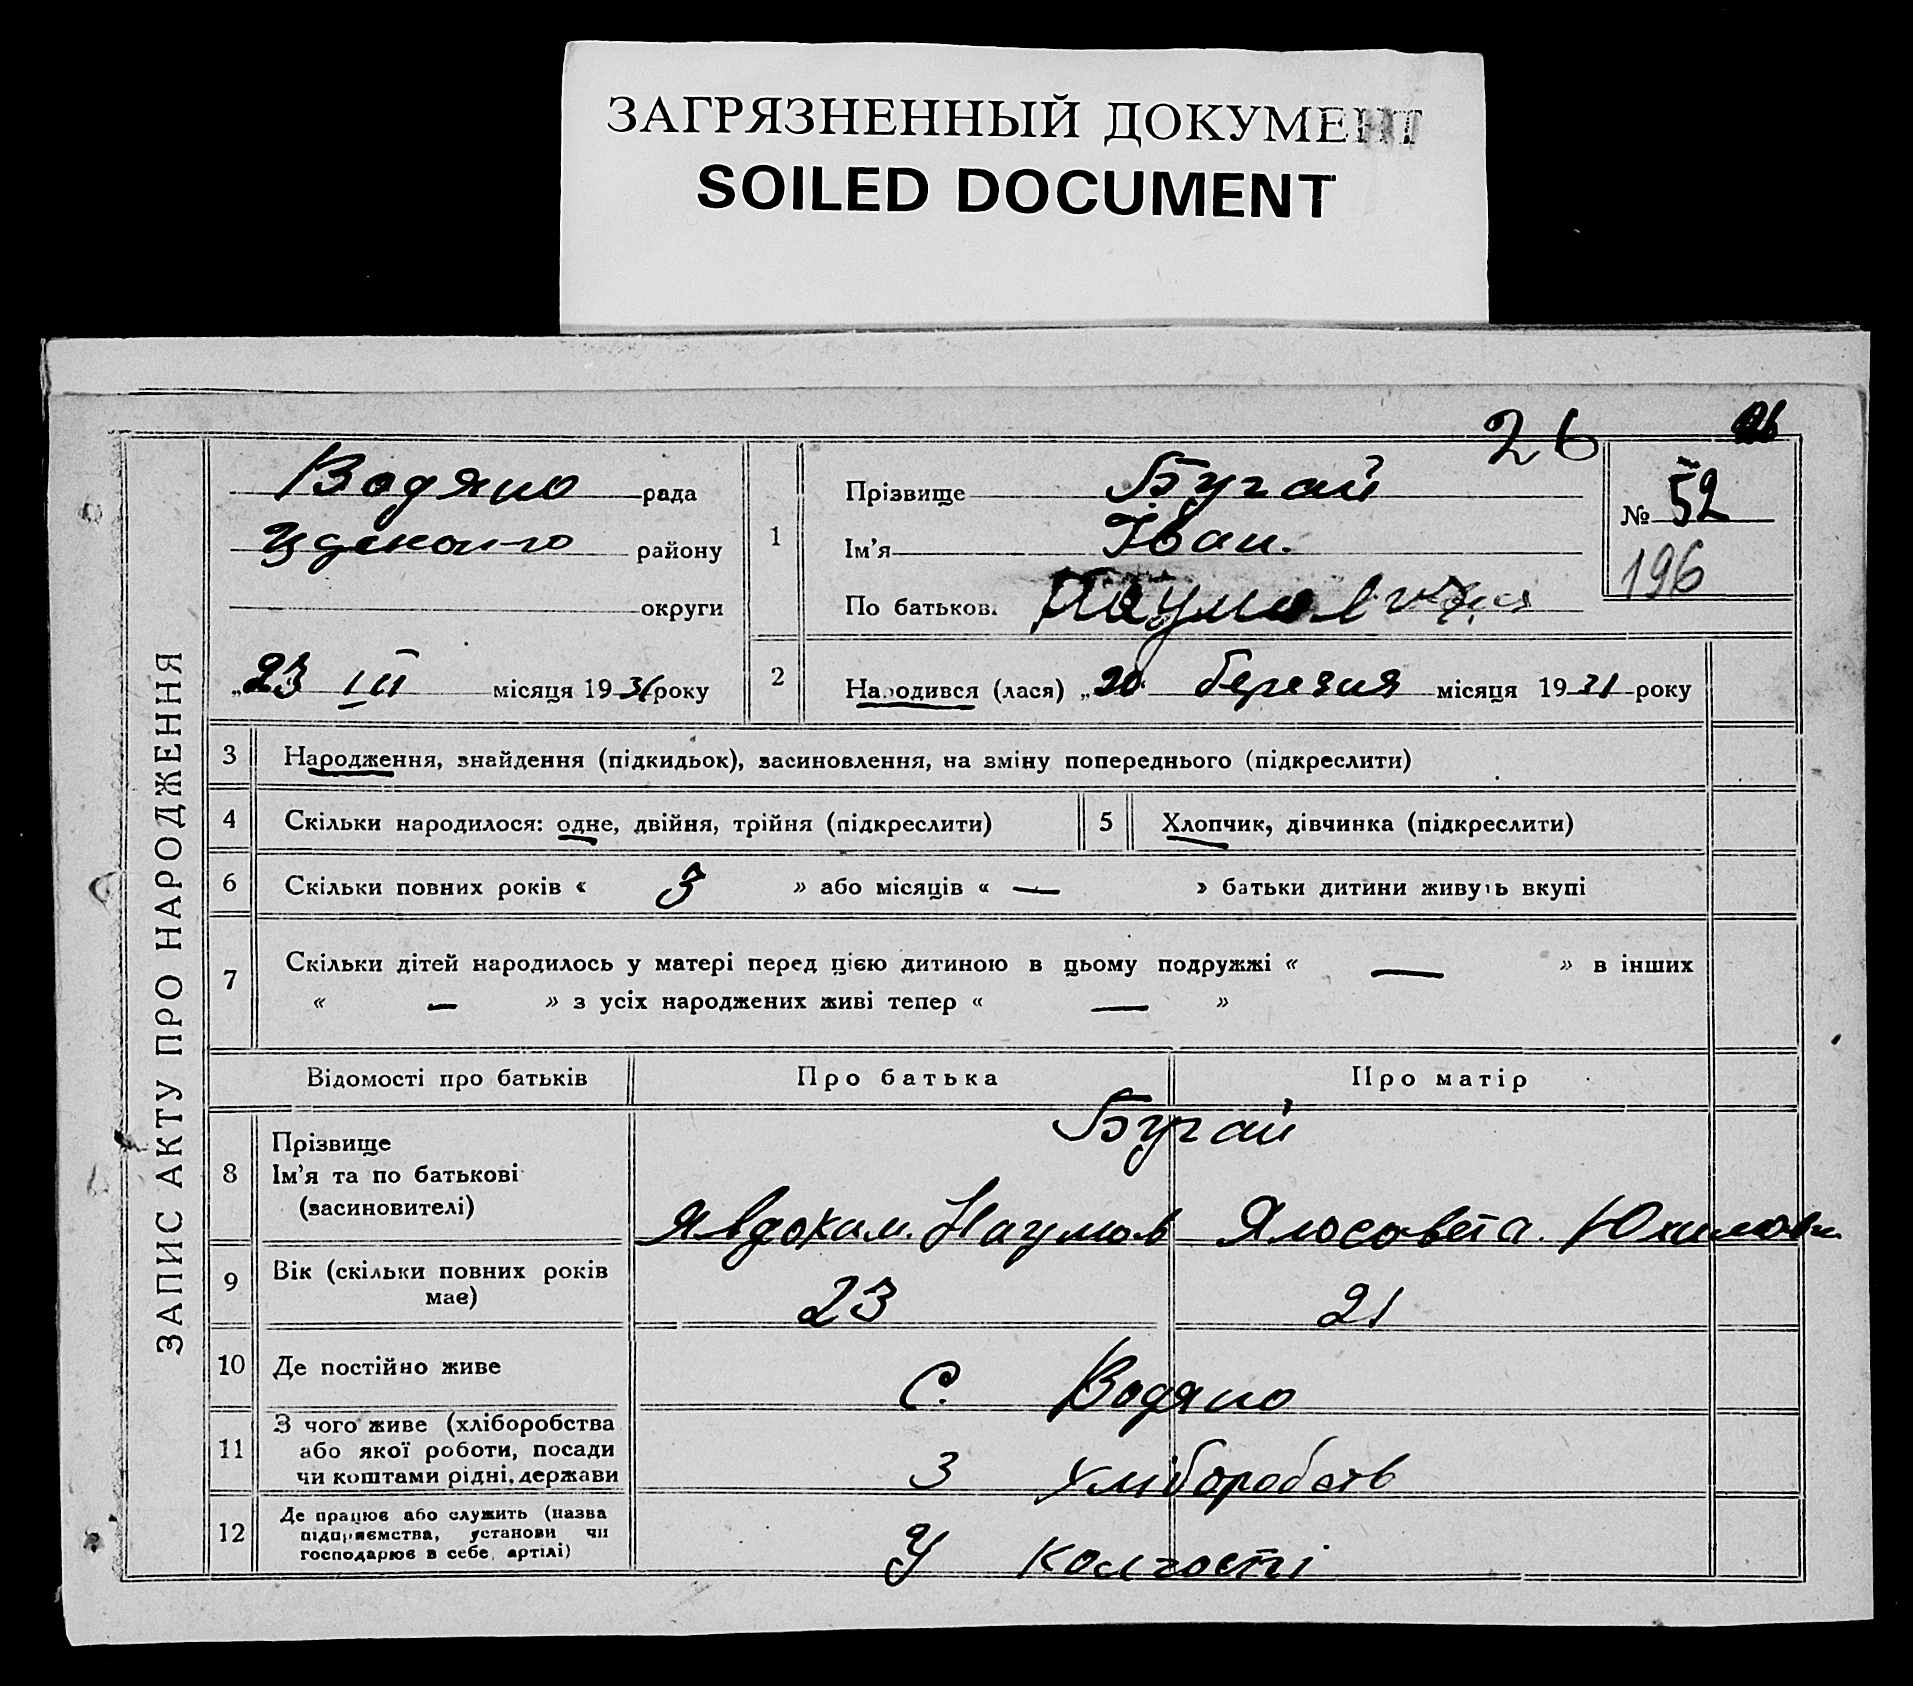 ЗАГРЯЗНЕННЫЙ ДОКУМЕНТ
SOILED DOCUMENT
26
ЗАПИС АКТУ ПРО НАРОДЖЕННЯ
Водяно рада
району
округи
„23 III місяця 1931 року
1
Прізвище Бугай
Ім'я Іван.
По батькові
№ 52
196
2
Народився (лася) „20“ березня місяця 1931 року
3 Народження, знайдення (підкидьок), засиновлення, на зміну попереднього (підкреслити)
4 Скільки народилося: одне, двійня, трійня (підкреслити) 5 Хлопчик, дівчинка (підкреслити)
6 Скільки повних років « 3 » або місяців « — » батьки дитини живуть вкупі
7 Скільки дітей народилось у матері перед цією дитиною в цьому подружжі « — » в інших
« — » з усіх народжених живі тепер « — »
Відомості про батьків Про батька Про матір
8 Прізвище Бугай
Ім'я та по батькові
(засиновителі) Явдоким. Наумов Ялосовета. Юхимовн
9 Вік (скільки повних років
має) 23 21
10 Де постійно живе С. Водяно
11 З чого живе (хліборобства
або якої роботи, посади
чи коштами рідні, держави З хліборобств
12 Де працює або служить (назва
підприємства, установи чи
господарює в себе, артілі) У колгоспі